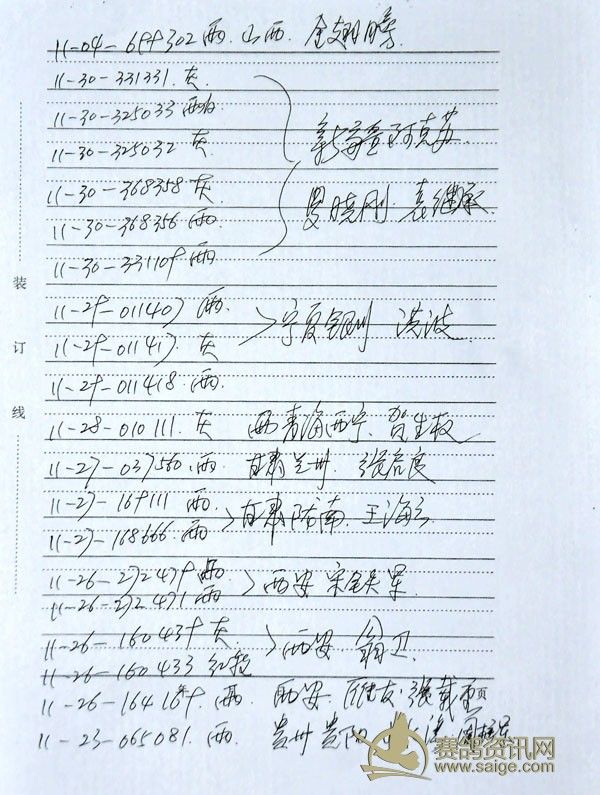 11-04-699302 雨. 山西.
11-30-331331. 灰
11-30-325033 雨白
11-30-325032 灰
新疆阿克苏.
11-30-368358 灰
晓刚 袁继承
11-30-368356 雨
11-30-331109 雨
装
11-29-011407 雨.
宁夏 洪波
11-29-011417. 灰
订
11-29-011418 雨.
线
11-28-010111. 灰 青海西宁. 贺生
11-27-037560. 雨 甘肃兰州. 张启良
11-27-169111 雨
甘肃陇南 王海
11-27-168666 雨
11-26-272479 雨
西安 宋军
11-26-272471 雨
11-26-160439 灰
西安 翁卫.
11-26-160433 红
11-26-164169. 雨. 西安. 张载 页
11-23-065081. 雨. 贵州 贵阳
赛鸽资讯网
www.saige.com